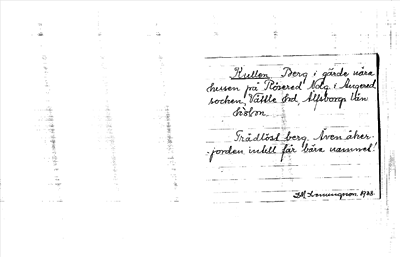 Kullen Berg i gärde nära
husen på Rösered Nolg. i Angered
socken, Vättle hd Älfsborgs län
Trädlöst berg. Även åker-
jorden intill får bära namnet!
1923